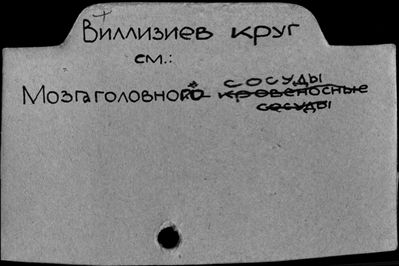 Виллизиев круг
см.:
Мозга головного сосуды
кровеносные
сосуды